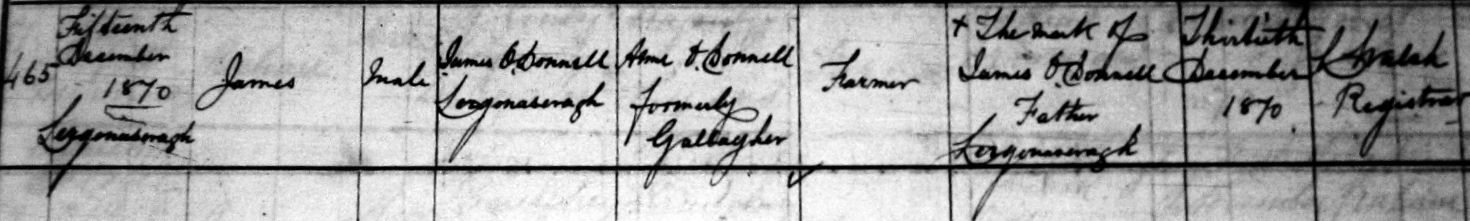 465
Fifteenth
December
1870
Lergonasewagh
James
Male
James O'Donnell
Lergonasewagh
Anne O'Donnell
formerly
Gallagher
Farmer
X The mark of
James O'Donnell
Father
Lergonasewagh
Thirtieth
December
1870
Registrar